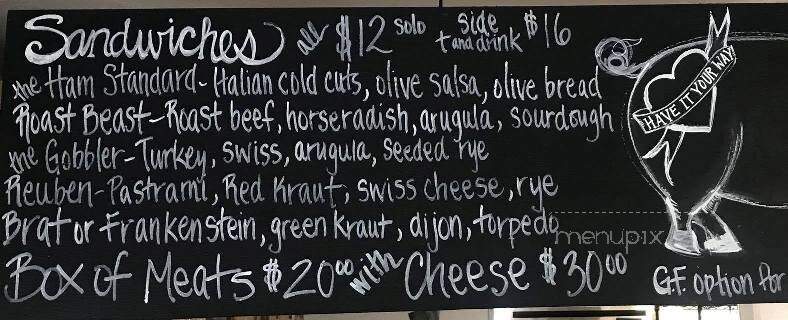 Sandwiches all $12 solo side + and drink $16
the Ham Standard - Italian cold cuts, olive salsa, olive bread
Roast Beast - Roast beef, horseradish, arugula, sourdough
the Gobbler - Turkey, swiss, arugula, seeded rye
Reuben - Pastrami, Red Kraut, swiss cheese, rye
Brat or Frankenstein, green kraut, dijon, torpedo
Box of Meats $20.00 with Cheese $30.00
G.F. option for
HAVE IT YOUR WAY!
menupix